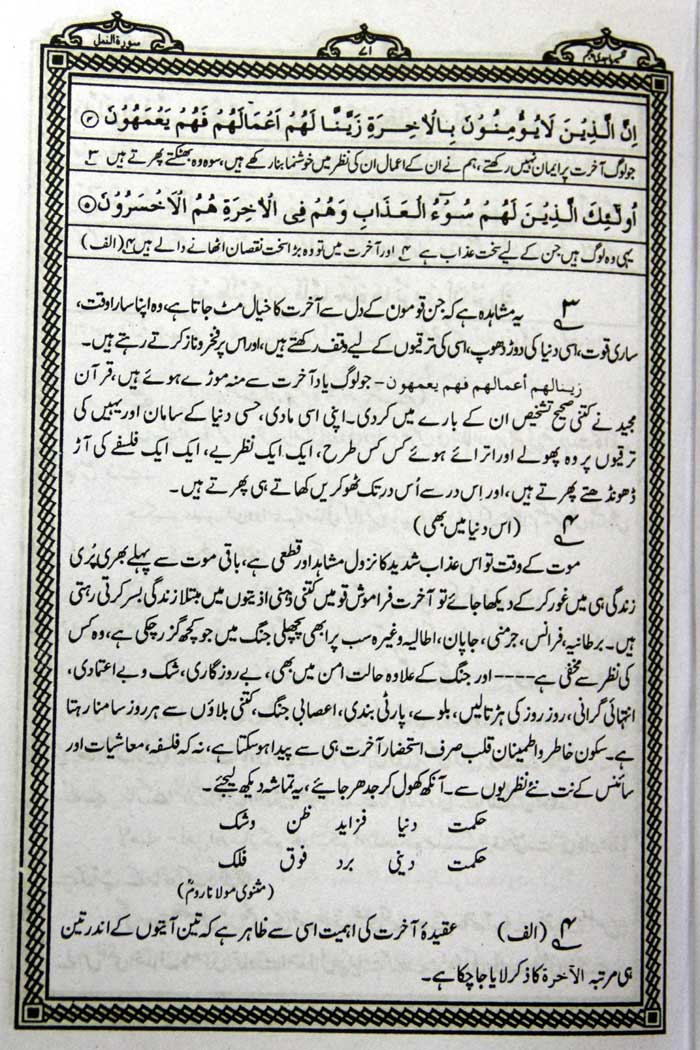 سورة النمل
۷۱
اِنَّ الَّذِيْنَ لَايُؤْمِنُوْنَ بِالْاٰخِرَةِ زَيَّنَّا لَهُمْ اَعْمَالَهُمْ فَهُمْ يَعْمَهُوْنَ ۴
جولوگ آخرت پر ایمان نہیں رکھتے، ہم نے ان کے اعمال ان کی نظر میں خوشنما بنا رکھے ہیں، سو وہ بھٹکتے پھرتے ہیں ۳
اُولٰٓئِكَ الَّذِيْنَ لَهُمْ سُوْٓءُ الْعَذَابِ وَهُمْ فِى الْاٰخِرَةِ هُمُ الْاَخْسَرُوْنَ ۵
یہی وہ لوگ ہیں جن کے لیے سخت عذاب ہے ۴ اور آخرت میں تو وہ بڑا سخت نقصان اٹھانے والے ہیں ۴ (الف)
۳ یہ مشاہدہ ہے کہ جن قوموں کے دل سے آخرت کا خیال مٹ جاتا ہے، وہ اپنا سارا وقت،
ساری قوت، اسی دنیا کی دوڑ دھوپ، اسی کی ترقیوں کے لیے وقف رکھتے ہیں، اور اس پر فخر و ناز کرتے رہتے ہیں۔
زینالهم أعمالهم فهم یعمهون - جولوگ یاد آخرت سے منہ موڑے ہوئے ہیں، قرآن
مجید نے کتنی صحیح تشخیص ان کے بارے میں کردی۔ اپنی اسی مادی، حسی دنیا کے سامان اور یہیں کی
ترقیوں پر وہ پھولے اور اترائے ہوئے کس کس طرح، ایک ایک نظریے، ایک ایک فلسفے کی آڑ
ڈھونڈھتے پھرتے ہیں، اور اِس در سے اُس در تک ٹھوکریں کھاتے ہی پھرتے ہیں۔
۴ (اس دنیا میں بھی)
موت کے وقت تو اس عذاب شدید کا نزول مشاہد اور قطعی ہے، باقی موت سے پہلے بھری پُری
زندگی ہی میں غور کرکے دیکھا جائے تو آخرت فراموش قومیں کتنی ذہنی اذیتوں میں مبتلا زندگی بسر کرتی رہتی
ہیں۔ برطانیہ، فرانس، جرمنی، جاپان، اطالیہ وغیرہ سب پر ابھی پچھلی جنگ میں جو کچھ گزر چکی ہے، وہ کس
کی نظر سے مخفی ہے---- اور جنگ کے علاوہ حالت امن میں بھی، بے روزگاری، شک و بے اعتمادی،
انتہائی گرانی، روز روز کی ہڑتالیں، بلوے، پارٹی بندی، اعصابی جنگ، کتنی بلاؤں سے ہر روز سامنا رہتا
ہے۔ سکون خاطر و اطمینان قلب صرف استحضار آخرت ہی سے پیدا ہوسکتا ہے، نہ کہ فلسفہ، معاشیات اور
سائنس کے نت نئے نظریوں سے۔ آنکھ کھول کر جدھر جائیے، یہ تماشہ دیکھ لیجئے۔
حکمت دنیا فزاید ظن وشک
حکمت دینی برد فوق فلک
(مثنوی مولانا رومؒ)
۴ (الف) عقیدۂ آخرت کی اہمیت اسی سے ظاہر ہے کہ تین آیتوں کے اندر تین
ہی مرتبہ الآخرة کا ذکر لایا جاچکا ہے۔